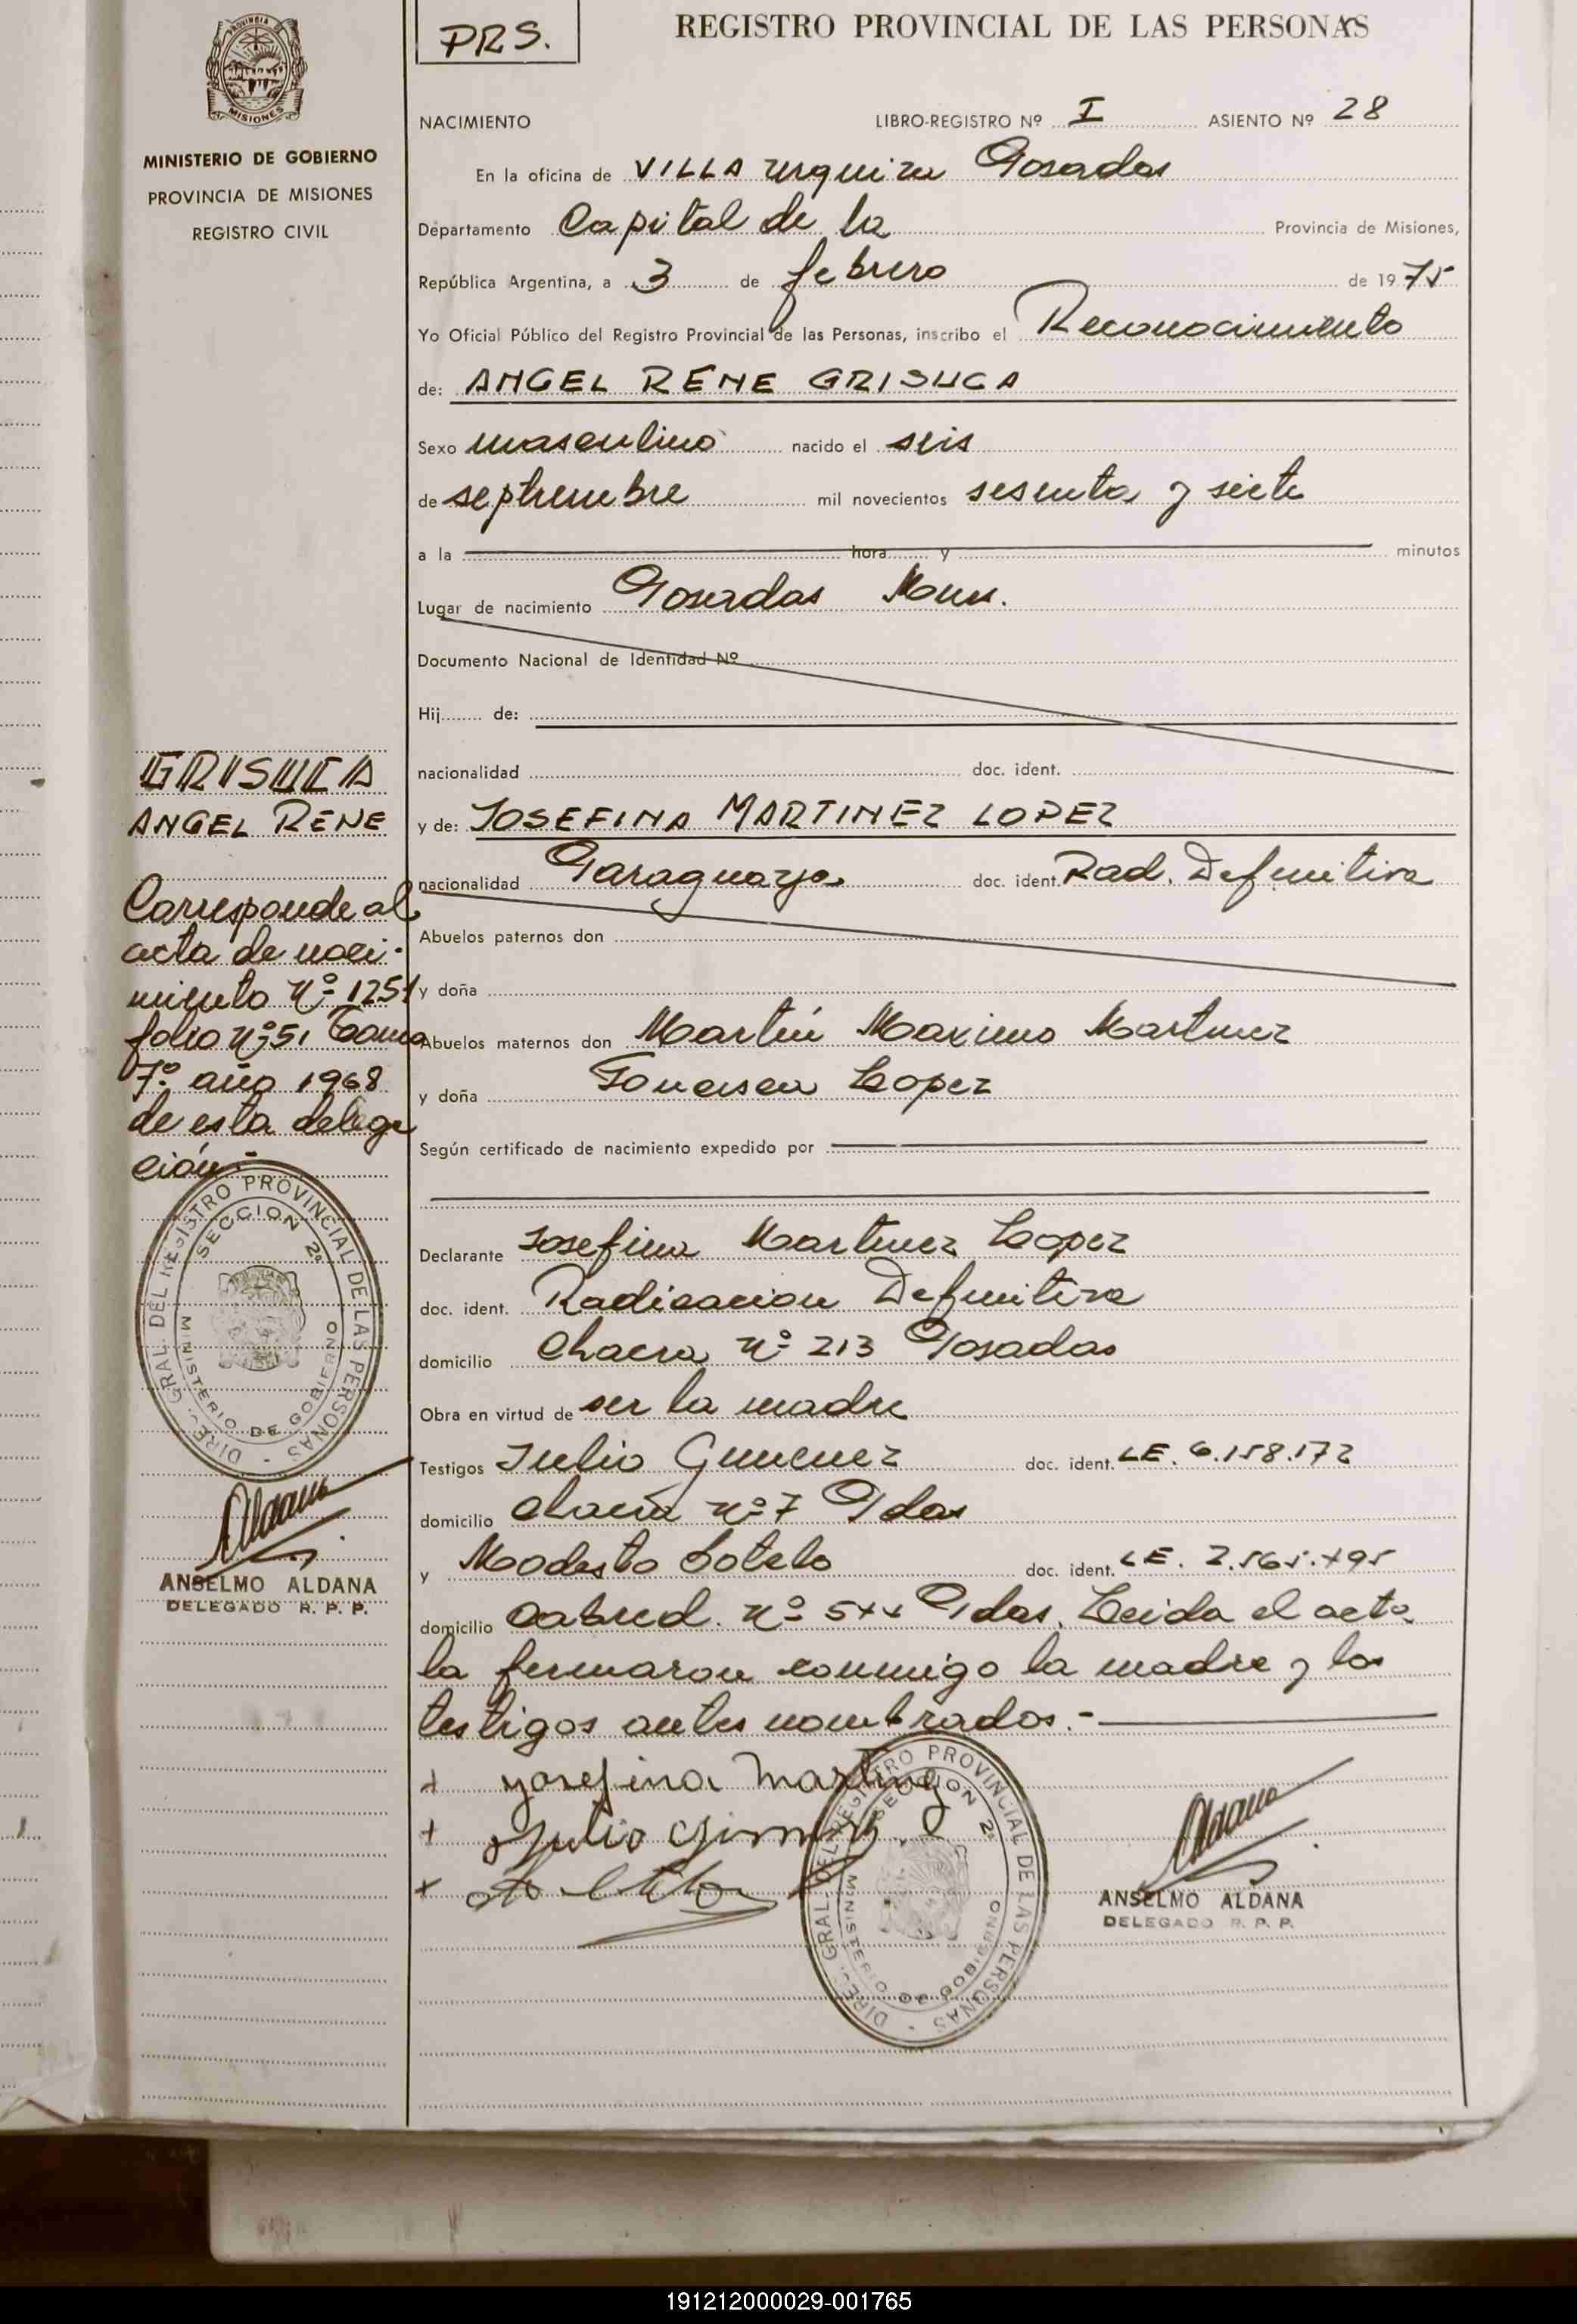 PROVINCIA
MISIONES
MINISTERIO DE GOBIERNO
PROVINCIA DE MISIONES
REGISTRO CIVIL
PRS.
REGISTRO PROVINCIAL DE LAS PERSONAS
NACIMIENTO LIBRO-REGISTRO Nº I ASIENTO Nº 28
En la oficina de VILLA urquiza Posadas
Departamento Capital de la Provincia de Misiones,
República Argentina, a 3 de febrero de 1975
Yo Oficial Público del Registro Provincial de las Personas, inscribo el Reconocimiento
de: ANGEL RENE GRISUCA
Sexo masculino nacido el seis
de septiembre mil novecientos sesenta y siete
a la hora y minutos
Lugar de nacimiento Posadas
Documento Nacional de Identidad Nº
Hij de:
nacionalidad doc. ident.
y de: JOSEFINA MARTINEZ LOPEZ
nacionalidad Paraguaya doc. ident. Rad. Definitiva
Abuelos paternos don
y doña
Abuelos maternos don Martín Maximo Martinez
y doña Francisca Lopez
Según certificado de nacimiento expedido por
Declarante Josefina Martinez Lopez
doc. ident. Radicacion Definitiva
domicilio Chacra Nº 213 Posadas
Obra en virtud de ser la madre
Testigos Julio Gimenez doc. ident. LE. 6.158.172
domicilio chacra nº 7 Pdas
y Modesto Sotelo doc. ident. LE. 2.565.
domicilio Cabred. Nº Pdas. Leida el acta
la firmaron conmigo la madre y los
testigos antes nombrados.-
+ Josefina Martinez
+ Julio Gimenez
+
GRISUCA
ANGEL RENE
Corresponde al
acta de naci-
miento Nº 1251
folio Nº 51 Tomo
7º año 1968
de esta delega
ción.-
DIREC. GRAL. DEL REGISTRO PROVINCIAL DE LAS PERSONAS
SECCION 2a
MINISTERIO DE GOBIERNO
Aldana
ANSELMO ALDANA
DELEGADO R. P. P.
DIREC. GRAL. DEL REGISTRO PROVINCIAL DE LAS PERSONAS
SECCION 2a
MINISTERIO DE GOBIERNO
Aldana
ANSELMO ALDANA
DELEGADO R. P. P.
191212000029-001765